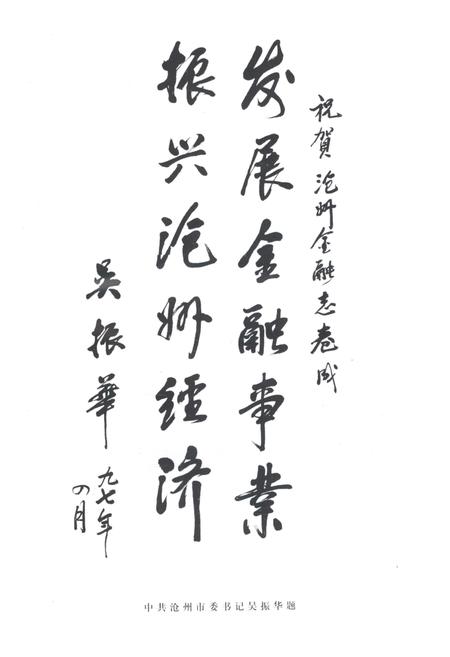 祝賀沧州金融志卷成
发展金融事业
振兴沧州经济
吴振華
九七年
四月
中共沧州市委书记吴振华题